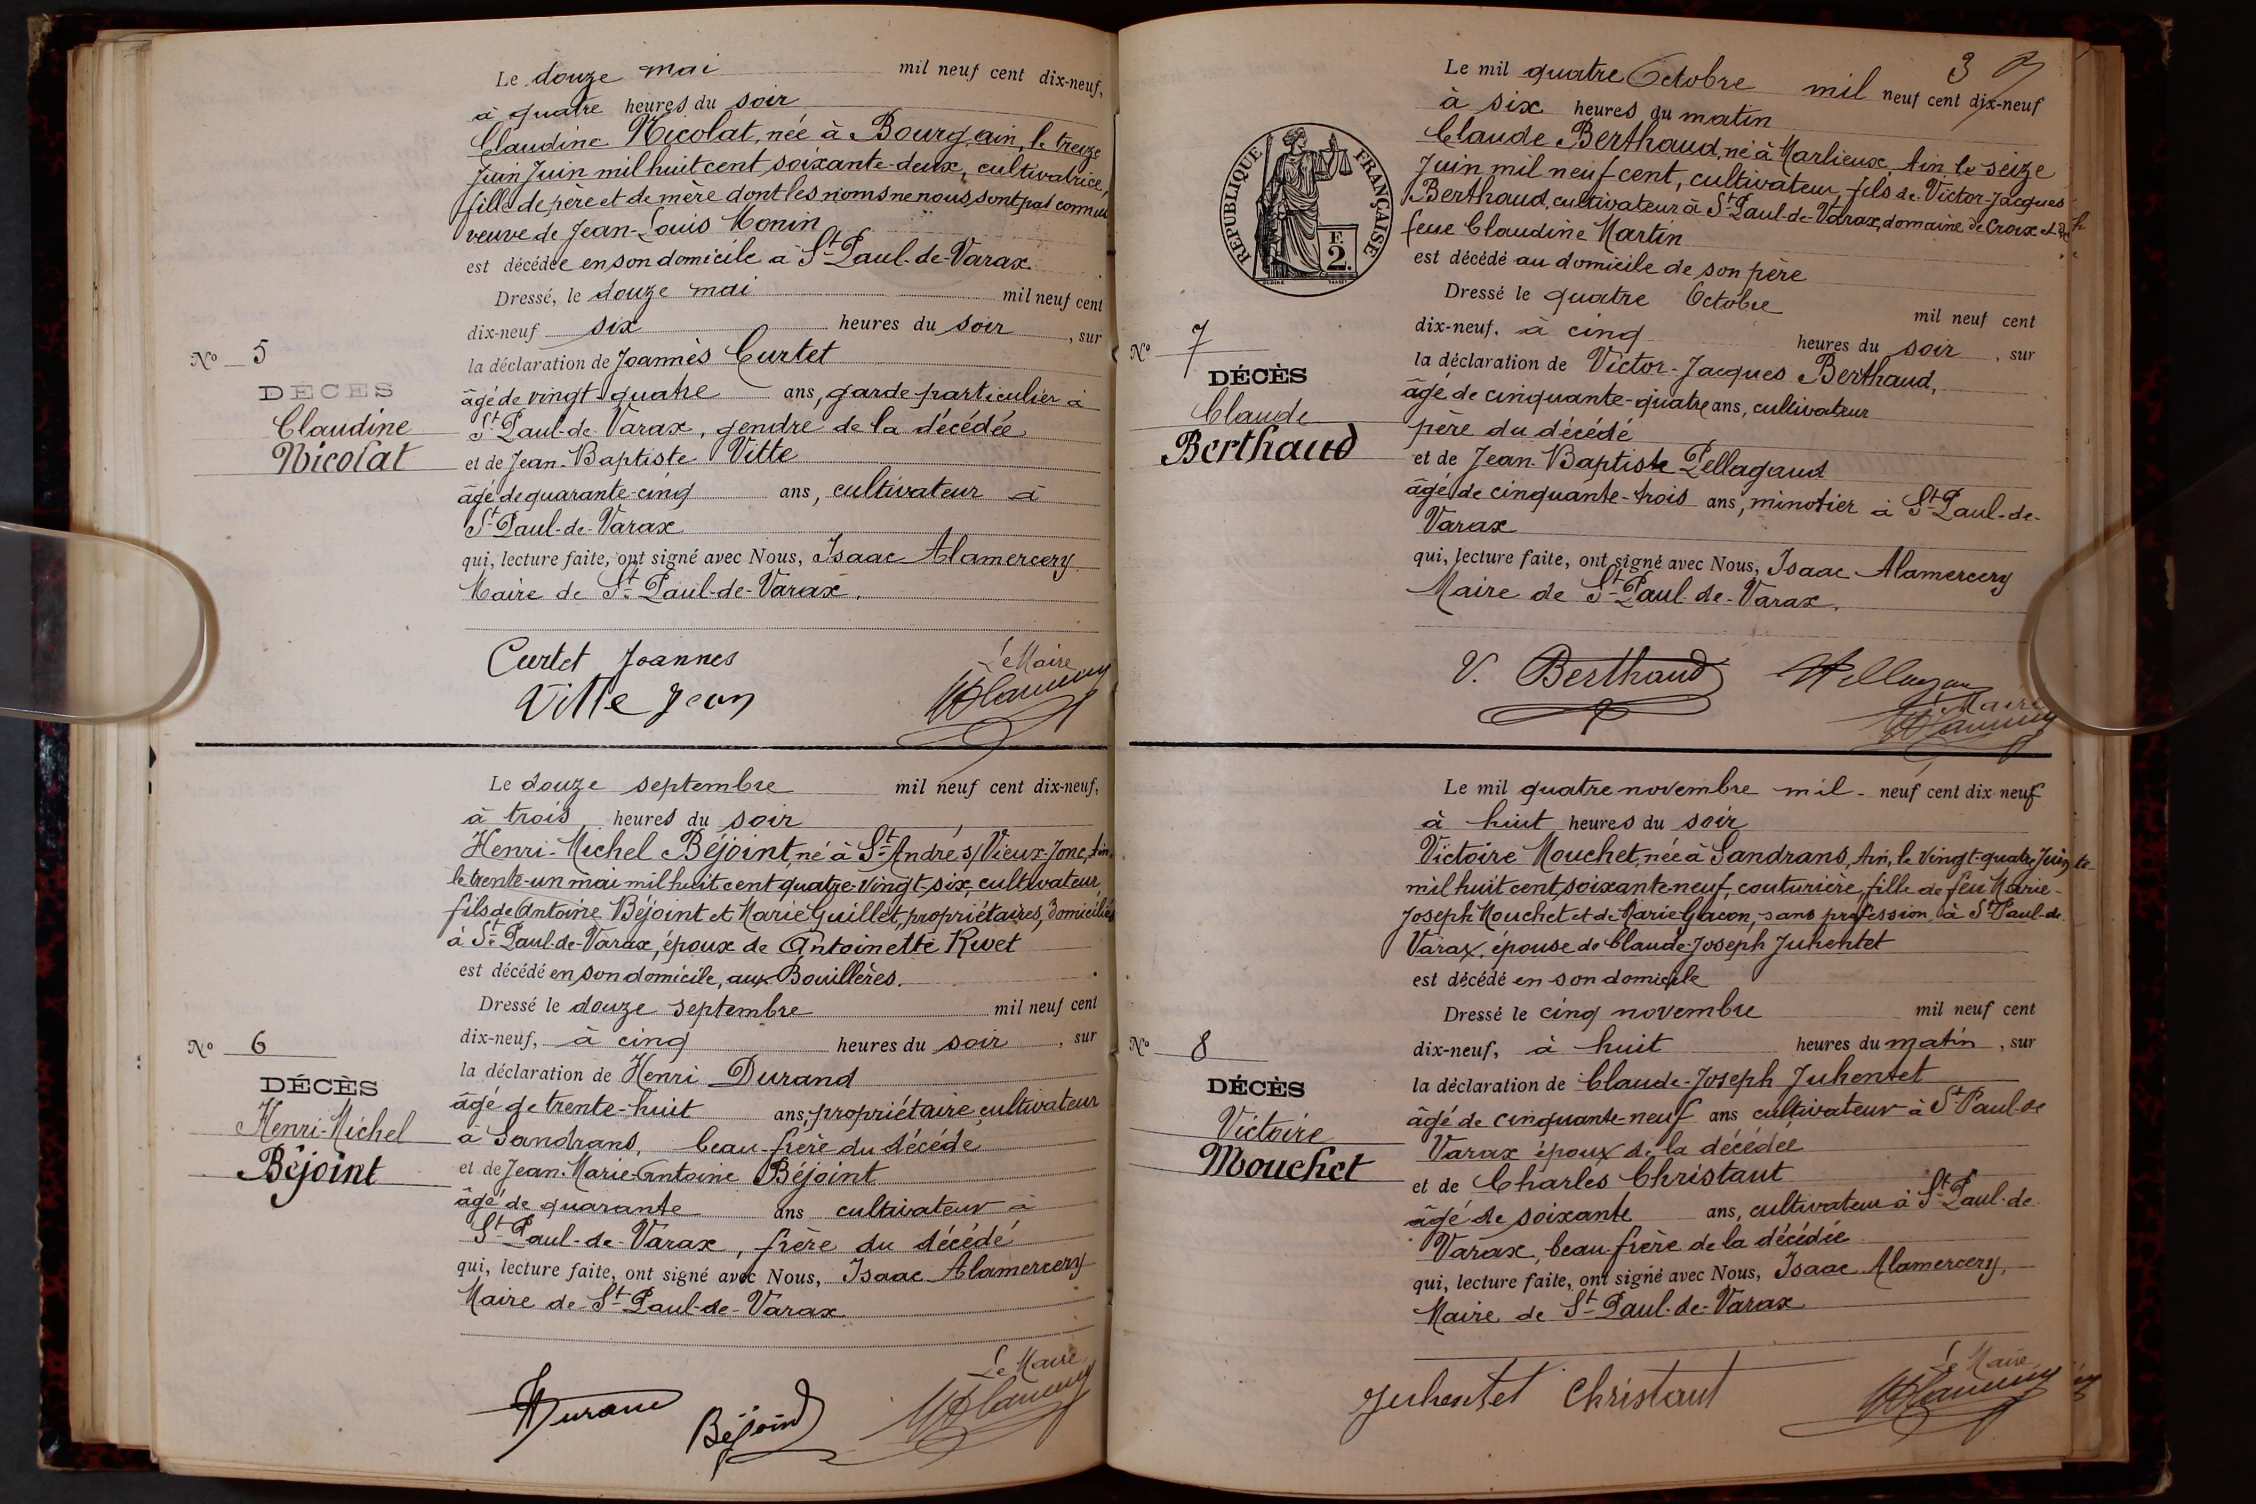 Le douze mai mil neuf cent dix-neuf,
à quatre heures du soir
Claudine Nicolat, née à Bourg, ain, le treize
Juin Juin mil huit cent soixante-deux, cultivatrice,
fille de père et de mère dont les noms ne nous sont pas connus
veuve de Jean-Louis Monin
est décédée en son domicile à St Paul-de-Varax
Dressé, le douze mai mil neuf cent
dix-neuf six heures du soir, sur
la déclaration de Joannès Curtet
âgé de vingt-quatre ans, garde particulier à
St Paul-de-Varax, gendre de la décédée
et de Jean-Baptiste Vitte
âgé de quarante-cinq ans, cultivateur à
St Paul-de-Varax
qui, lecture faite, ont signé avec Nous, Isaac Alamercery
Maire de St Paul-de-Varax.
Curtet Joannes
Vitte Jean
Le Maire
No 5
DÉCÈS
Claudine
Nicolat
Le douze septembre mil neuf cent dix-neuf,
à trois heures du soir
Henri-Michel Béjoint, né à St André s/ Vieux-Jonc, Ain,
le trente-un mai mil huit cent quatre-vingt-six, cultivateur,
fils de Antoine Béjoint et Marie Guillet, propriétaires, domiciliés
à St Paul-de-Varax, époux de Antoinette Rivet
est décédé en son domicile, aux Bouillères.
Dressé le douze septembre mil neuf cent
dix-neuf, à cinq heures du soir, sur
la déclaration de Henri Durand
âgé de trente-huit ans, propriétaire cultivateur
à Sandrans, beau-frère du décédé
et de Jean-Marie-Antoine Béjoint
âgé de quarante ans cultivateur à
St Paul-de-Varax, frère du décédé
qui, lecture faite, ont signé avec Nous, Isaac Alamercery
Maire de St Paul-de-Varax
Le Maire
HDurand
Béjoint
No 6
DÉCÈS
Henri-Michel
Béjoint
3
Le mil quatre Octobre mil neuf cent dix-neuf
à six heures du matin
Claude Berthaud, né à Marlieux, Ain le seize
Juin mil neuf cent, cultivateur, fils de Victor-Jacques
Berthaud, cultivateur à St Paul-de-Varax, domaine de Croix et de
feue Claudine Martin
est décédé au domicile de son père
Dressé le quatre Octobre mil neuf cent
dix-neuf, à cinq heures du soir, sur
la déclaration de Victor-Jacques Berthaud,
âgé de cinquante-quatre ans, cultivateur
père du décédé
et de Jean-Baptiste Pellagaud
âgé de cinquante-trois ans, minotier à St Paul-de-
Varax
qui, lecture faite, ont signé avec Nous, Isaac Alamercery
Maire de St Paul-de-Varax.
V. Berthaud
Maire
RÉPUBLIQUE FRANÇAISE
F.
2.
No 7
DÉCÈS
Claude
Berthaud
Le mil quatre novembre mil- neuf cent dix-neuf
à huit heures du soir
Victoire Mouchet, née à Sandrans, Ain, le vingt-quatre Juin
mil huit cent soixante-neuf, couturière, fille de feu Marie-
Joseph Mouchet et de Marie Gacon, sans profession, à St Paul-de-
Varax, épouse de Claude-Joseph Juhentet
est décédé en son domicile
Dressé le cinq novembre mil neuf cent
dix-neuf, à huit heures du matin, sur
la déclaration de Claude-Joseph Juhentet
âgé de cinquante-neuf ans cultivateur à St Paul-de
Varax époux de la décédée
et de Charles Christaut
âgé de soixante ans, cultivateur à St Paul-de-
Varax, beau-frère de la décédée
qui, lecture faite, ont signé avec Nous, Isaac Alamercery,
Maire de St Paul-de-Varax
Juhentet Christaut
Le Maire
No 8
DÉCÈS
Victoire
Mouchet